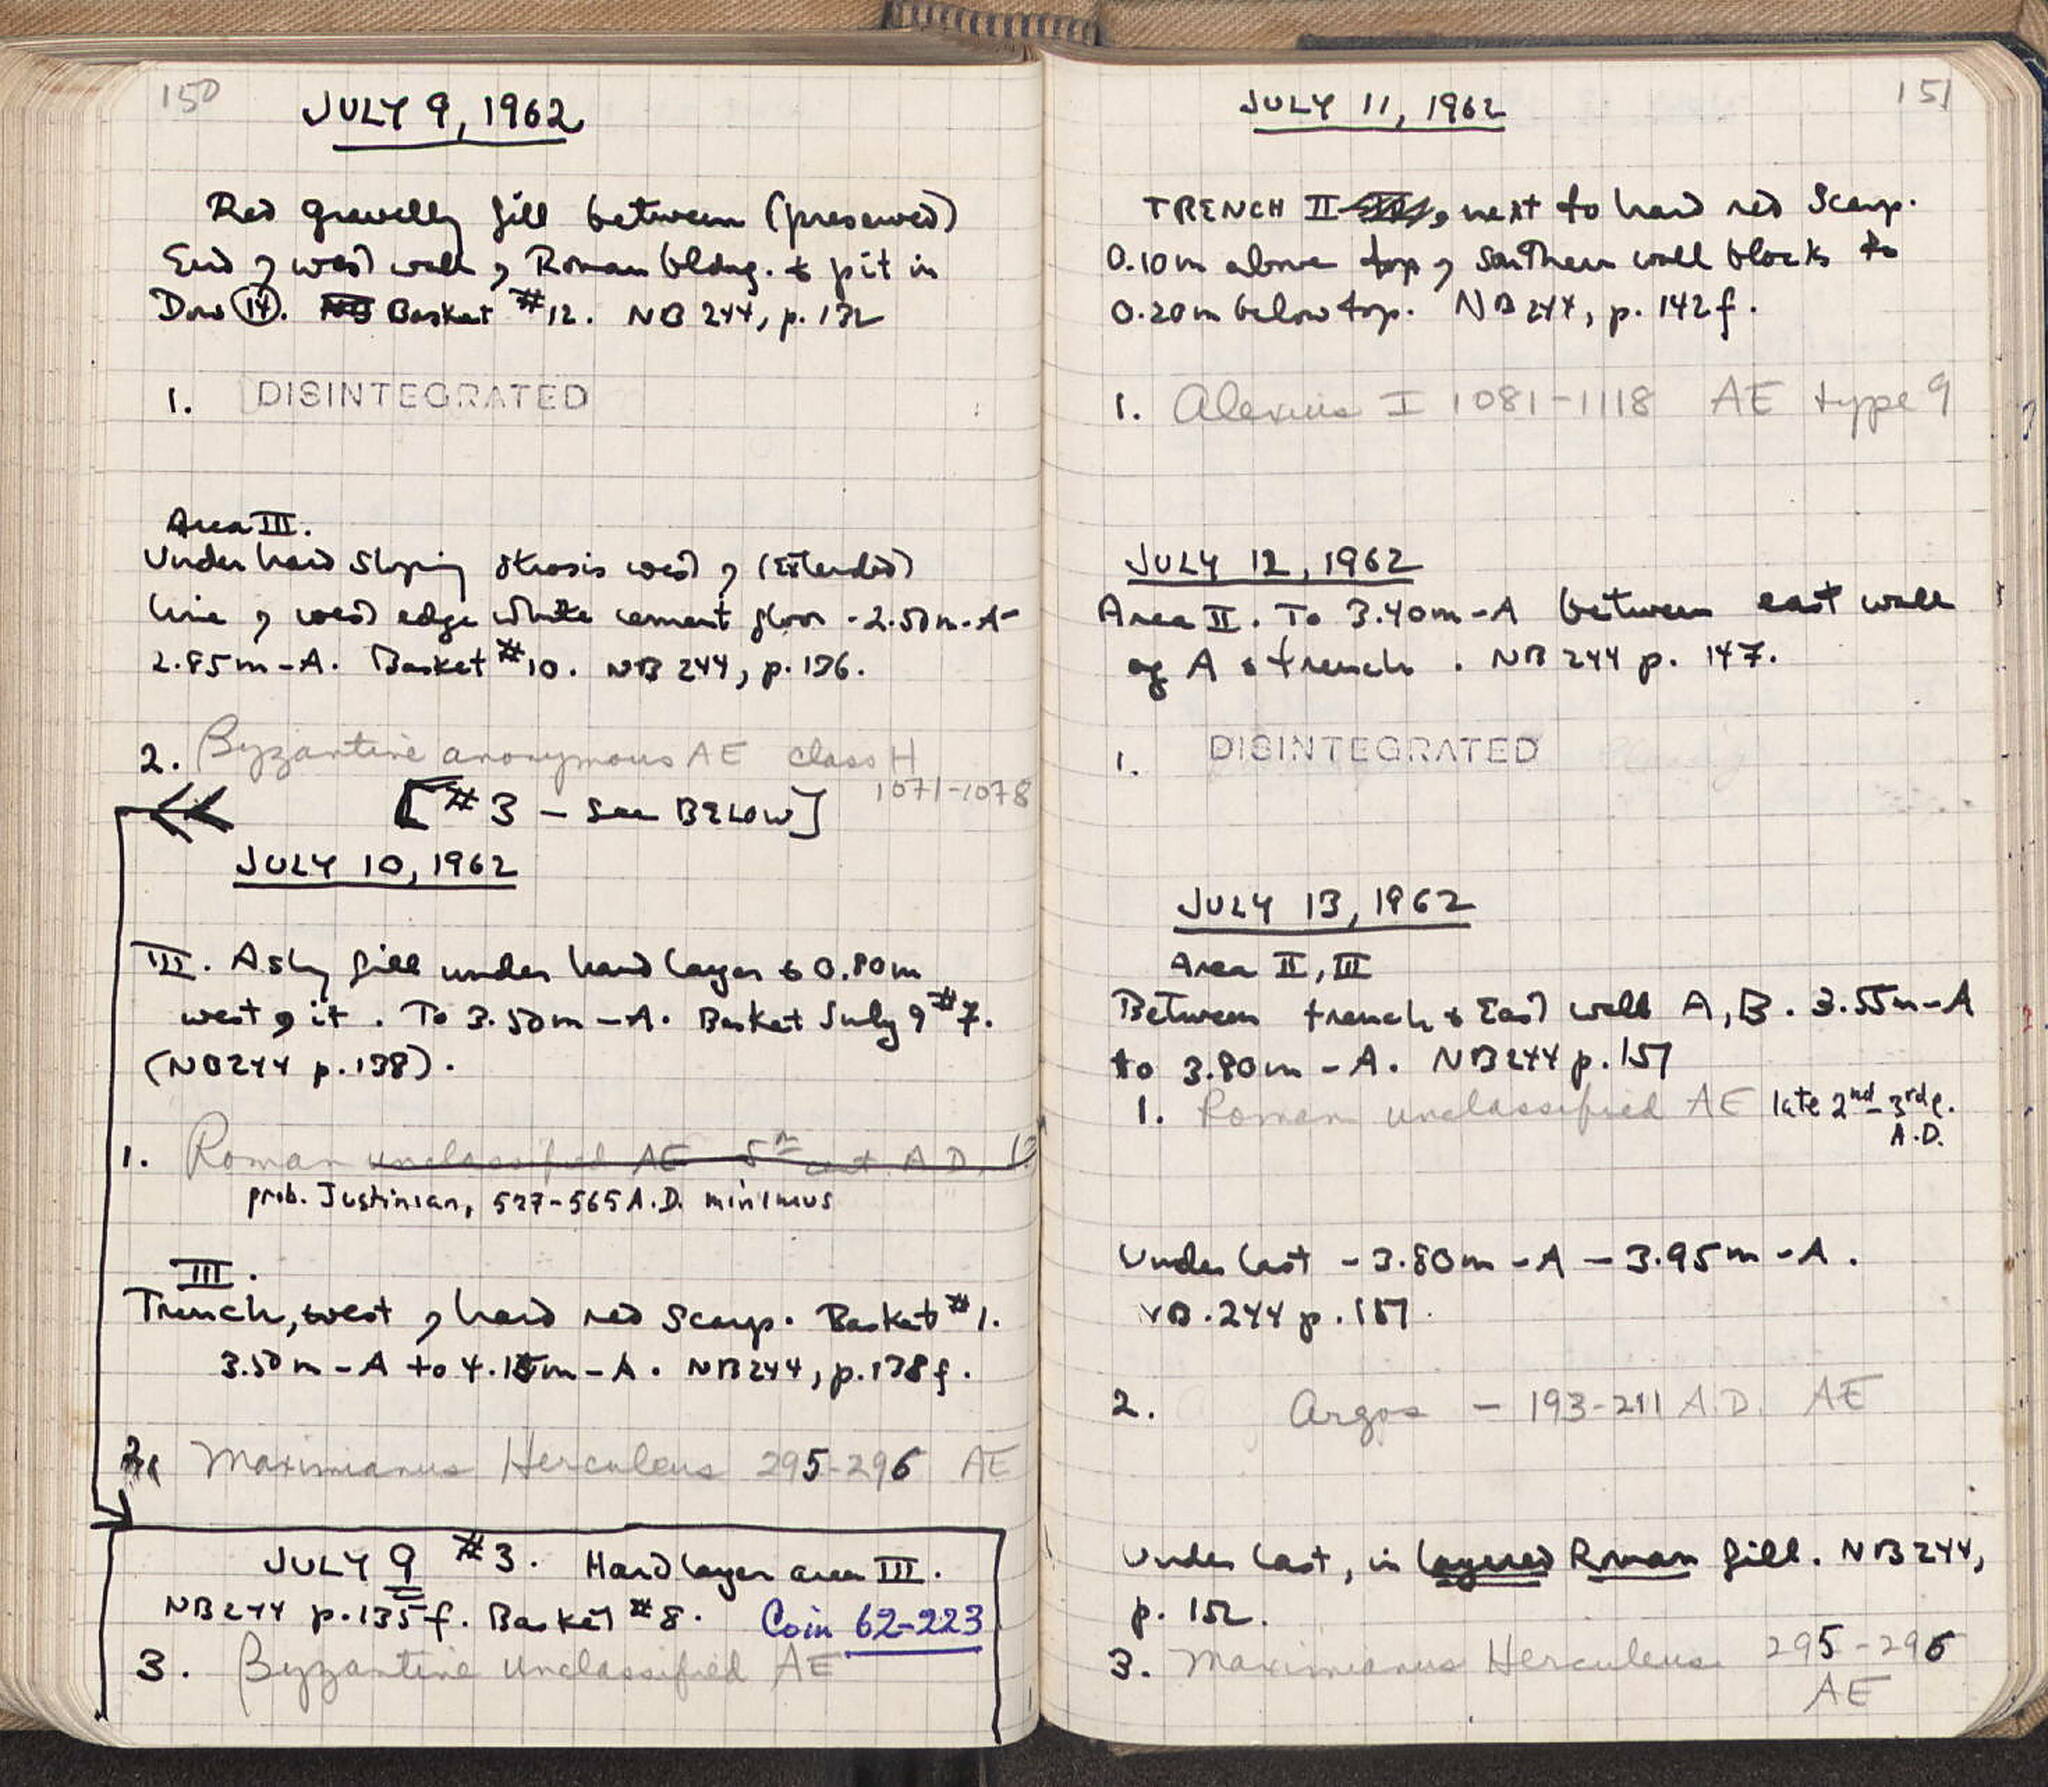 150
JULY 9, 1962
Red gravelly fill between (preserved)
End of west wall of Roman bldng. & pit in
Dow 14. Basket #12. NB 244, p. 132
1. DISINTEGRATED
Area III.
Under hard sloping strosis west of (Extended)
line of west edge white cement floor - 2.50m-A-
2.85m-A. Basket #10. NB 244, p. 136.
2. Byzantine anonymous AE class H
1071-1078
[#3 - See BELOW]
JULY 10, 1962
III. Ashy fill under hard layer & 0.80m
west of it. To 3.50m-A. Basket July 9 #7.
(NB244 p. 138).
1. Roman unclassified AE 5th cent. A.D.
prob. Justinian, 527-565 A.D. minimus
III.
Trench, west of hard red scarp. Basket #1.
3.50m-A to 4.15m-A. NB244, p. 138f.
2. Maximianus Herculeus 295-296 AE
JULY 9 #3. Hard layer area III.
NB244 p. 135f. Basket #8. Coin 62-223
3. Byzantine unclassified AE
151
JULY 11, 1962
TRENCH II, next to hard red Scarp.
0.10m above top of Southern wall blocks to
0.20m below top. NB 244, p. 142f.
1. Alexius I 1081-1118 AE type 9
JULY 12, 1962
Area II. To 3.40m-A between east wall
of A & trench. NB 244 p. 147.
1. DISINTEGRATED
JULY 13, 1962
Area II, III
Between trench & East wall A, B. 3.55m-A
to 3.80m-A. NB244 p. 151
1. Roman unclassified AE late 2nd-3rd c.
A.D.
Under last - 3.80m-A - 3.95m-A.
NB.244 p. 151.
2. Argos - 193-211 A.D. AE
Under last, in layered Roman fill. NB244,
p. 152.
3. Maximianus Herculeus 295-296
AE